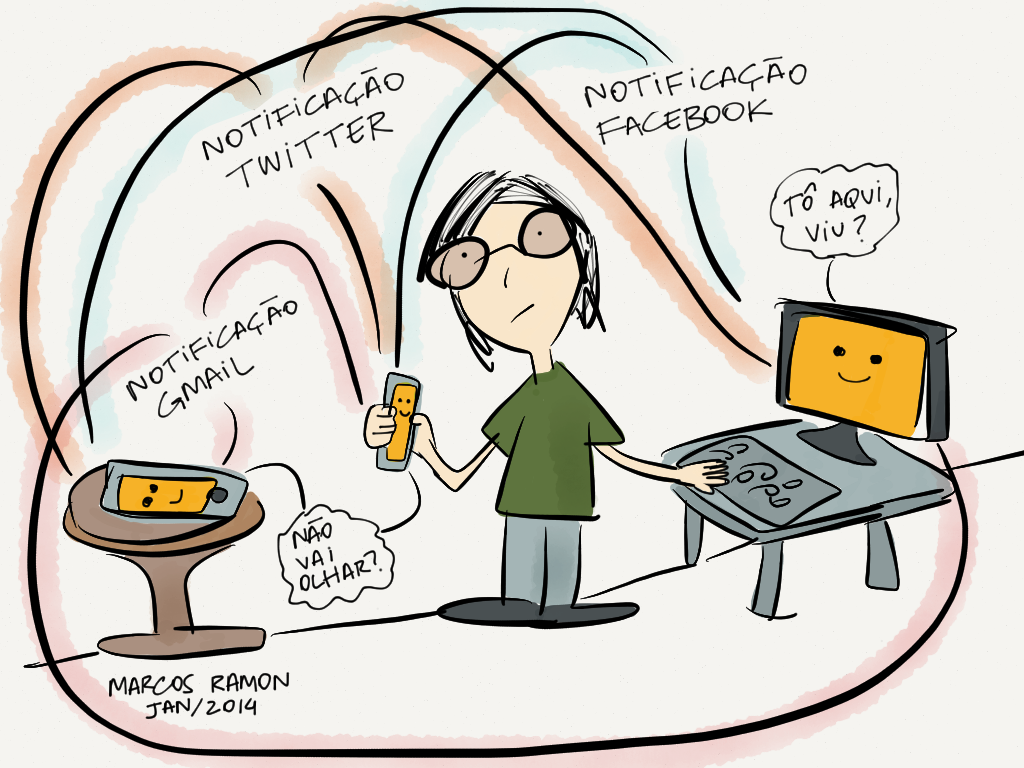 NOTIFICAÇÃO
TWITTER
NOTIFICAÇÃO
FACEBOOK
TÔ AQUI,
VIU?
NOTIFICAÇÃO
GMAIL
NÃO
VAI
OLHAR?
MARCOS RAMON
JAN/2014